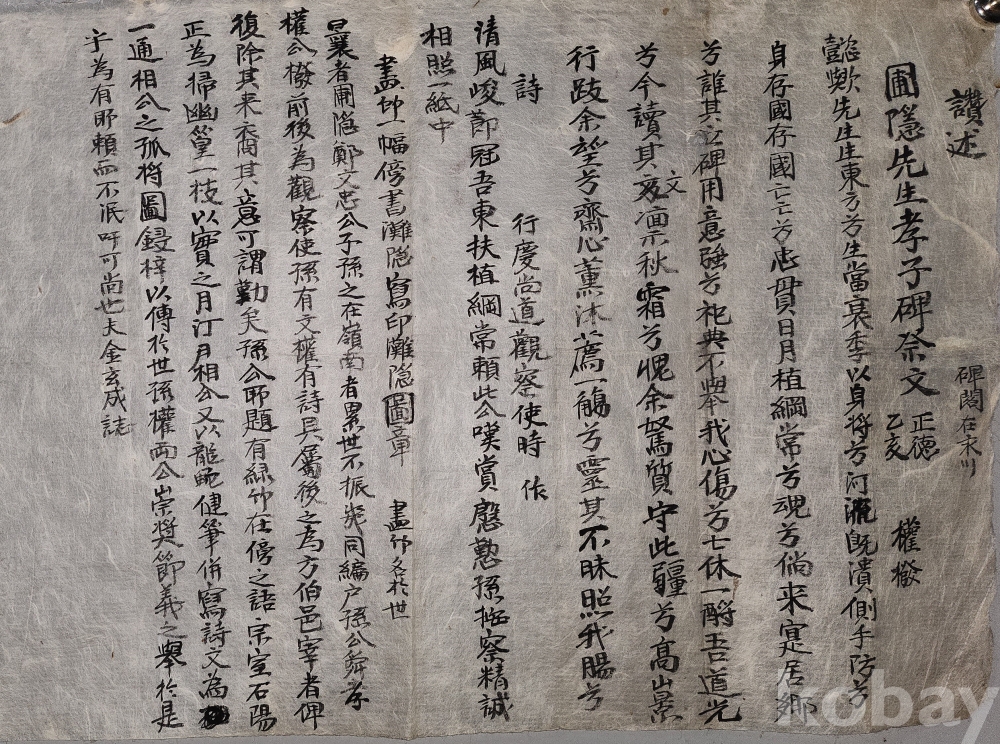 讚述
圃隐先生孝子碑祭文 正德乙亥 權撥
碑閣在永川
懿歟先生生東方兮生當衰季以身將兮河流旣潰側手防兮
身存國存國亡亡兮忠貫日月植綱常兮魂兮倘来寔居鄉
兮誰其立碑用意強兮祀典不擧我心傷兮七休一酹吾道光
兮今讀其文凛秋霜兮愧余駑質守此疆兮高山景
行跂余望兮齋心薰沐薦一觴兮靈其不昧照我腸兮
詩
行慶尚道觀察使時作
清風峻節冠吾東扶植綱常頼此公嘆賞慇懃孫按察精誠
相照一紙中
畫竹一幅傍書灘隐寫印灘隐圖章
畫竹名於世
曩者圃隐鄭文忠公子孫之在嶺南者累世不振幾同編户孫公舜孝
權公撥前後為觀察使孫有文權有詩具屬後之為方伯邑宰者俾
復除其来裔其意可謂勤矣孫公所題有緑竹在傍之語宗室石陽
正為掃幽篁一枝以實之月汀月相公又以龍蛇健筆併寫詩文為
一通相公之孤将圖鋟梓以傳於世孫權兩公崇奬節義之擧於是
乎為有所頼而不泯吁可尚也夫金玄成誌
kobay